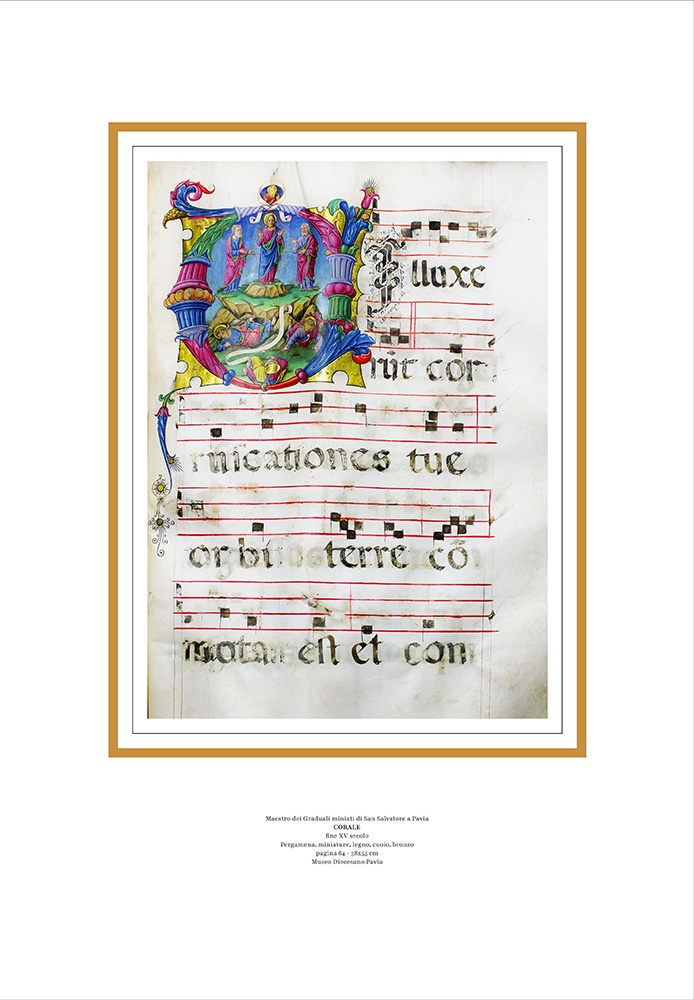 Illuxe
rūt cor
ruscationes tue
orbi terre cō
mota est et
Maestro dei Graduali miniati di San Salvatore a Pavia
CORALE
fine XV secolo
Pergamena, miniature, legno, cuoio, bronzo
pagina 64 - 38x55 cm
Museo Diocesano Pavia